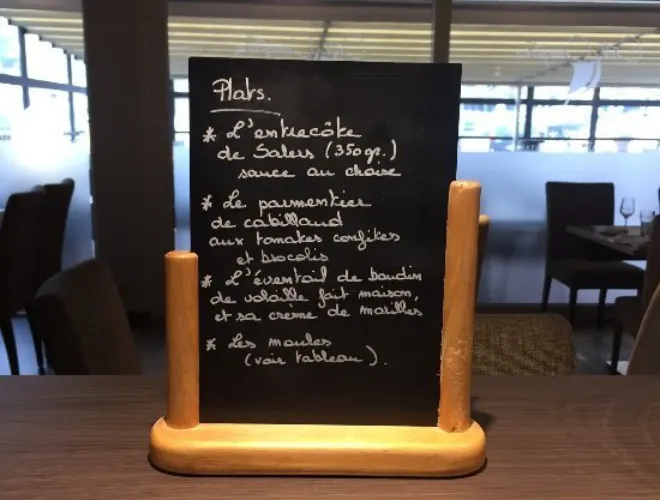 Plats.
* L'entrecôte
de Salers (350gr.)
sauce au choix
* Le parmentier
de cabillaud
aux tomates confites
et brocolis
* L'éventail de boudin
de volaille fait maison,
et sa creme de morilles
* Les moules
(voir tableau).